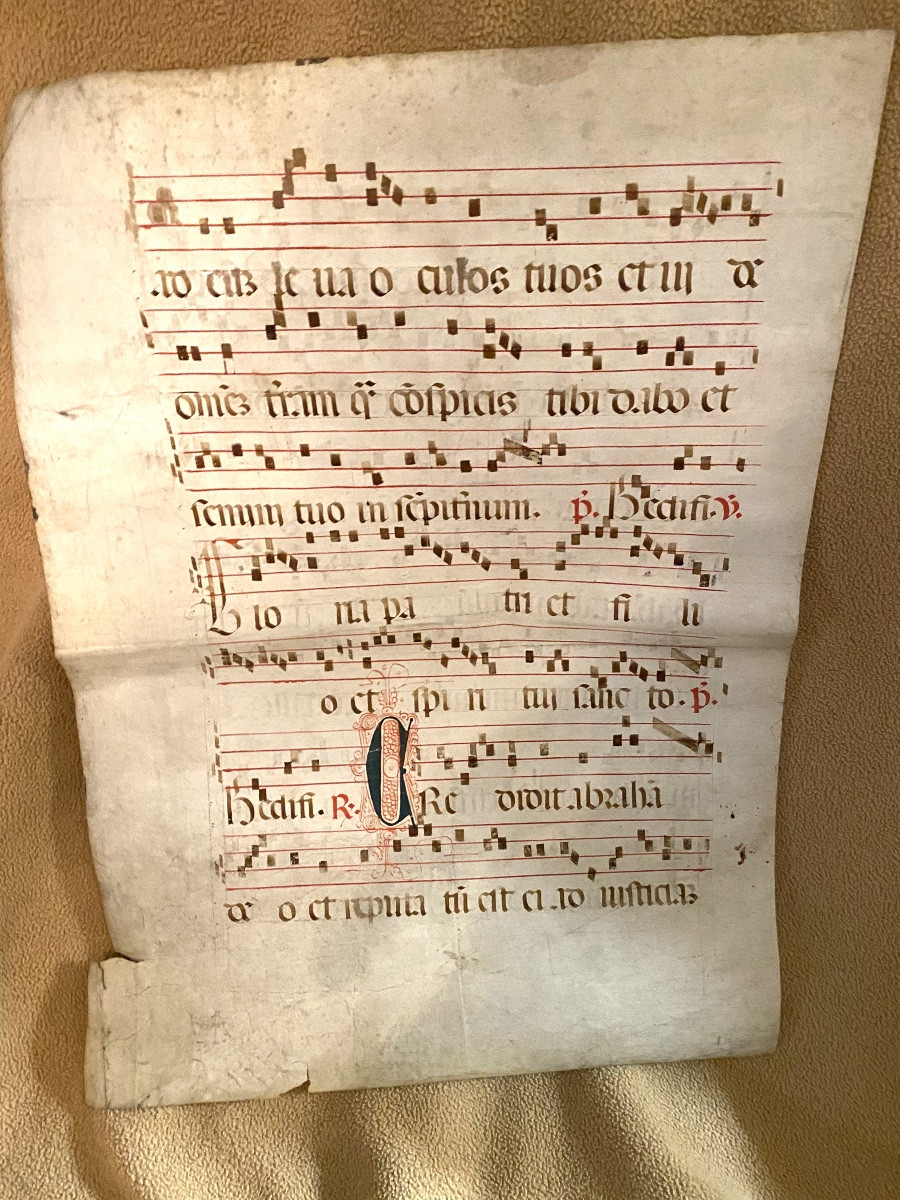 ro eis le ua o culos tuos et uı de
om̃es tr̃am q̃ cõspicis tibi dabo et
semini tuo in sẽpit̃num. p̃. Hedifi. v̓.
Glo ria pa tri et fi li
o et spi ri tui sanc to. p̃.
Hedifi. R. CRe didit abrahã
de o et reputa tũ est ei ad iusticiaꝫ